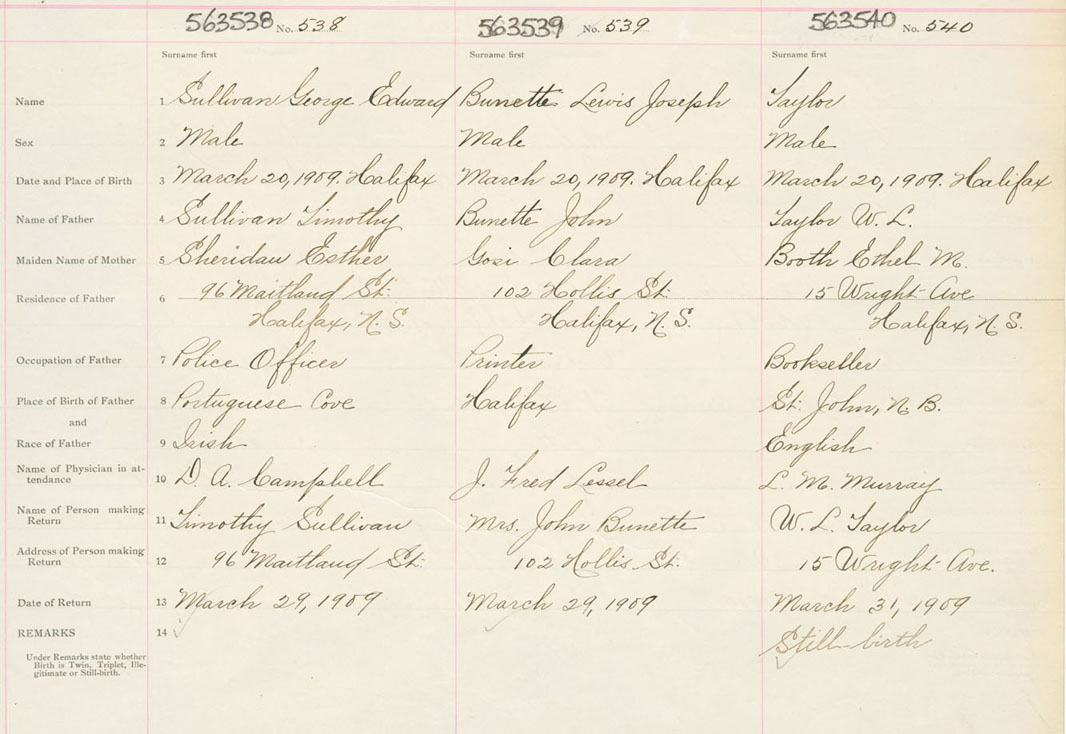 563538 No. 538 563539 No. 539 563540 No. 540
Surname first Surname first Surname first
Name 1 Sullivan George Edward Bunette Lewis Joseph Taylor
Sex 2 Male Male Male
Date and Place of Birth 3 March 20, 1909. Halifax March 20, 1909. Halifax March 20, 1909. Halifax
Name of Father 4 Sullivan Timothy Bunette John Taylor W. L.
Maiden Name of Mother 5 Sheridan Esther Gosi Clara Booth Ethel M.
Residence of Father 6 96 Maitland St. 102 Hollis St. 15 Wright Ave
Halifax, N. S. Halifax, N. S. Halifax, N. S.
Occupation of Father 7 Police Officer Printer Bookseller
Place of Birth of Father 8 Portuguese Cove Halifax St. John, N. B.
and
Race of Father 9 Irish English
Name of Physician in at-
tendance 10 D. A. Campbell J. Fred Lessel L. M. Murray
Name of Person making
Return 11 Timothy Sullivan Mrs. John Bunette W. L. Taylor
Address of Person making
Return 12 96 Maitland St. 102 Hollis St. 15 Wright Ave.
Date of Return 13 March 29, 1909 March 29, 1909 March 31, 1909
REMARKS 14 Still-birth
Under Remarks state whether
Birth is Twin, Triplet, Ille-
gitimate or Still-birth.